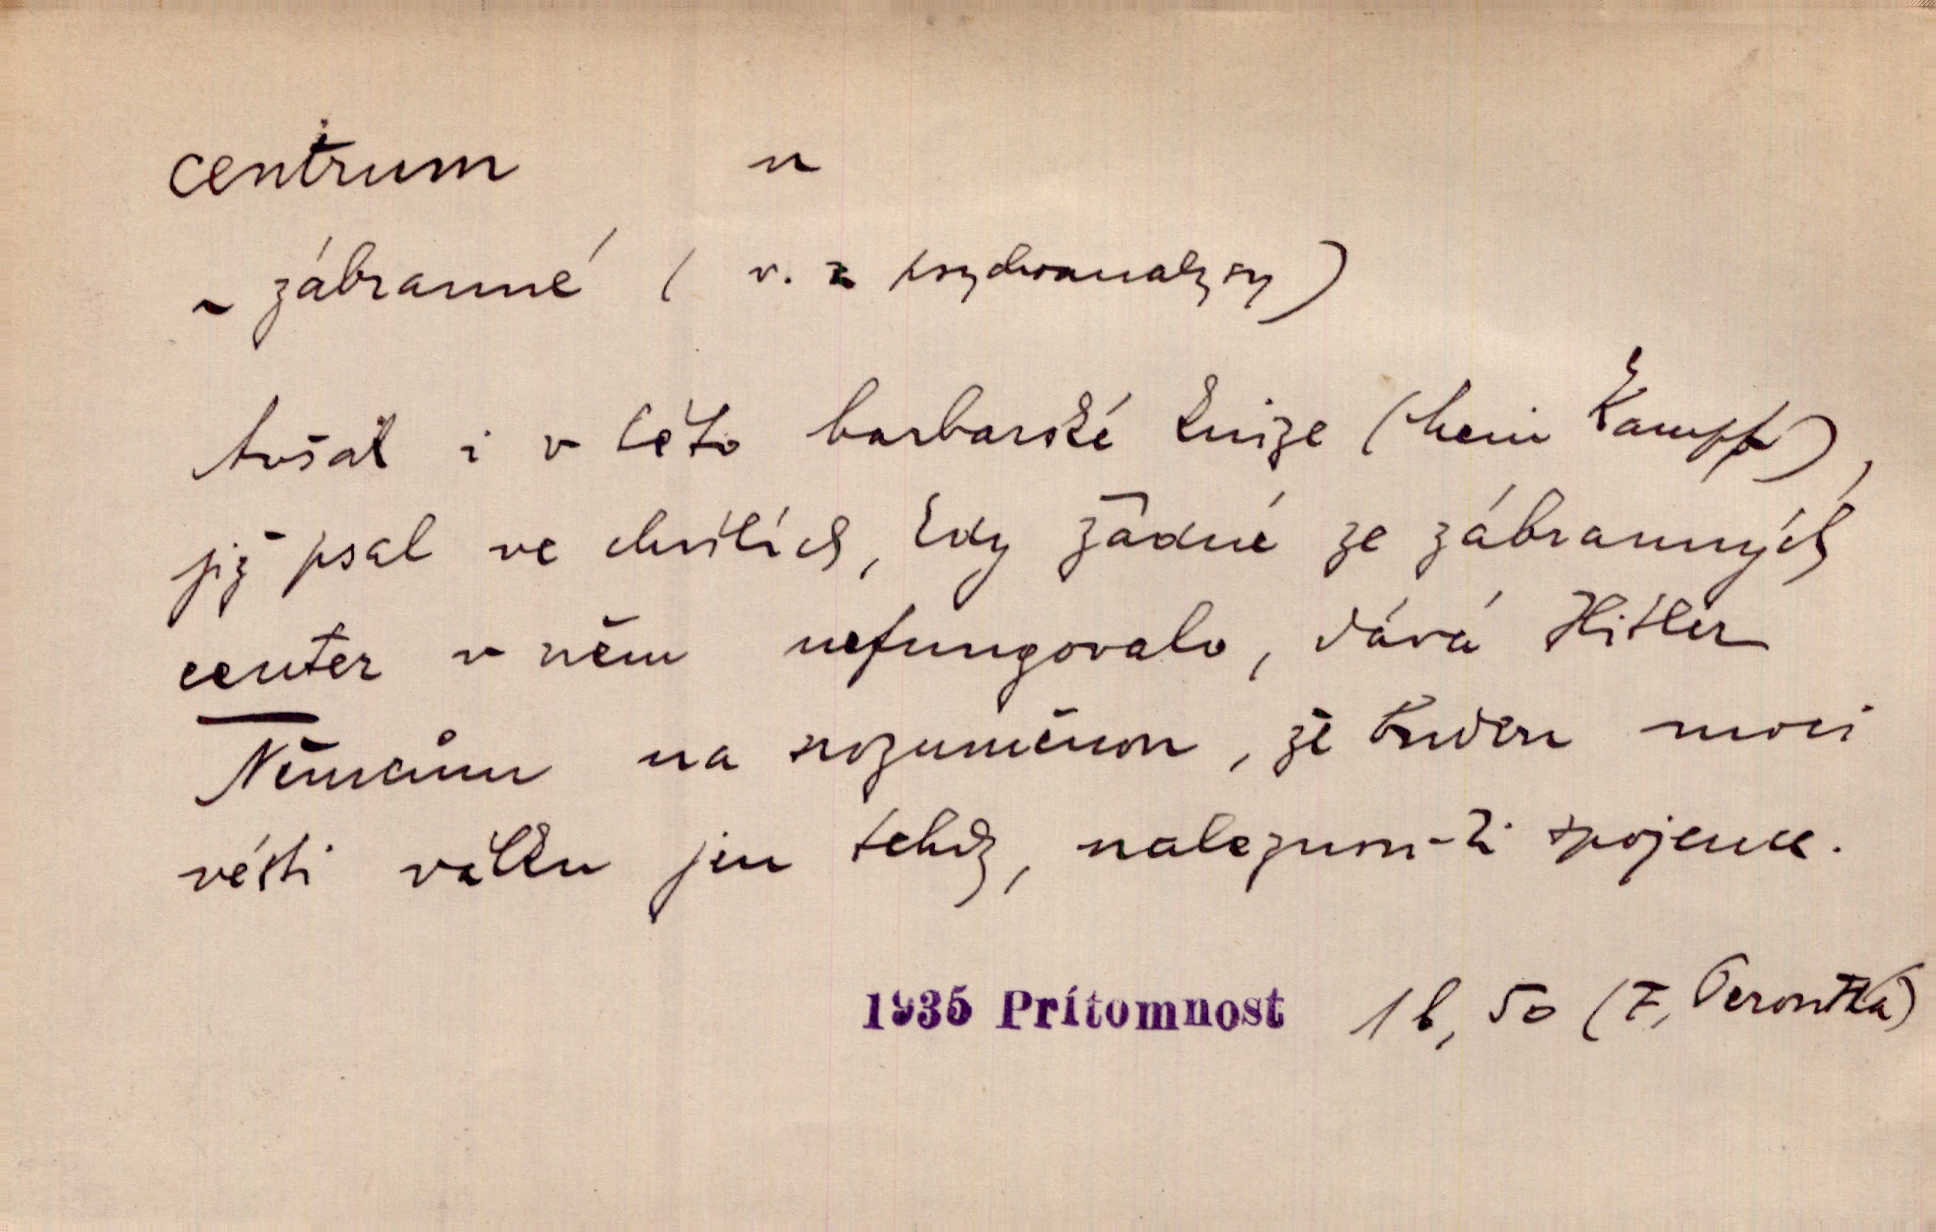 centrum n
~ zábranné (v. z psychoanalysy)
Avšak i v této barbarské knize (Mein Kampf),
již psal ve chvílích, kdy žádné ze zábranných
center v něm nefungovalo, dává Hitler
Němcům na srozuměnou, že budou moci
vésti válku jen tehdy, naleznou-li spojence.
1935 Prítomnost 1b, 50 (F. Peroutka)